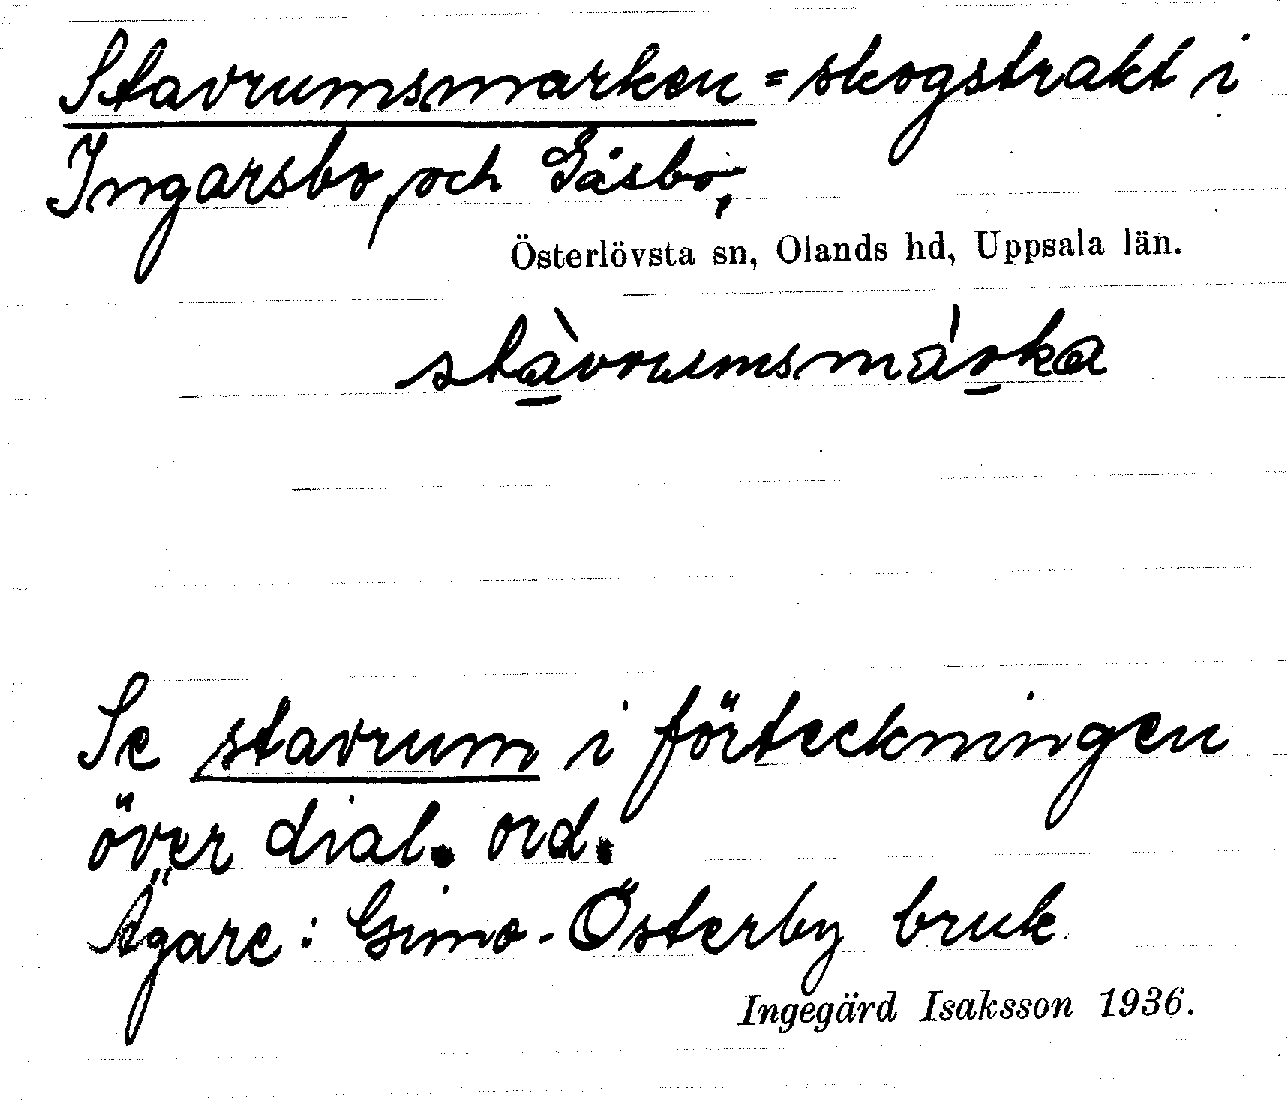 Stavrumsmarken = skogstrakt i
Ingarsbo, och Gåsbo,
Österlövsta sn, Olands hd, Uppsala län.
stàvrumsmárka
Se stavrum i förteckningen
över dial. ord.
Ägare: Gimo-Österby bruk
Ingegärd Isaksson 1936.